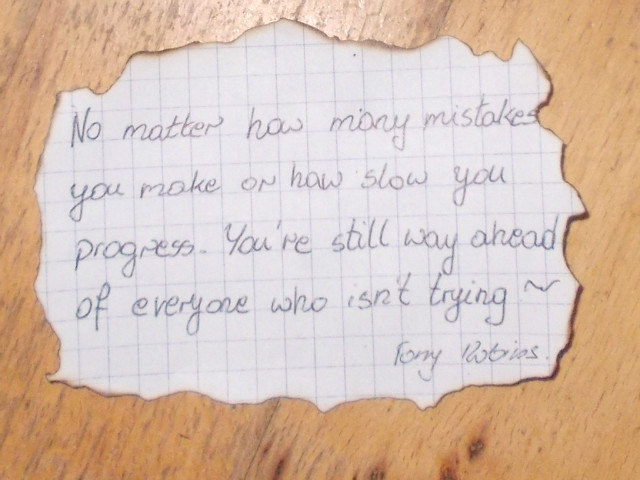 No matter how many mistakes
you make or how slow you
progress. You're still way ahead
of everyone who isn't trying ~
Tony Robins.